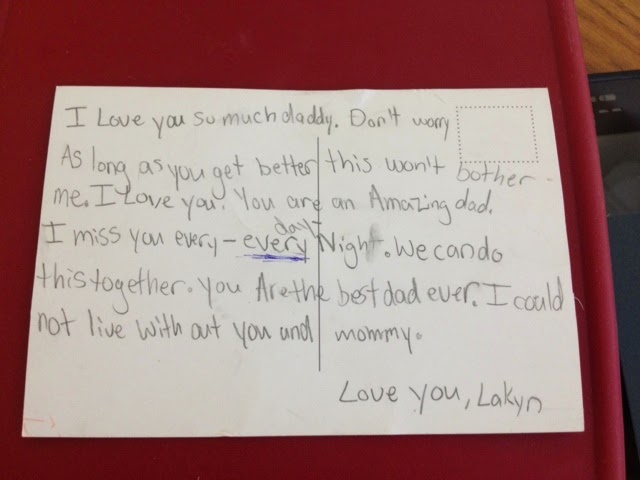 I Love you so much daddy. Don't worry
As long as you get better this won't bother
me. I Love you. You are an Amazing dad.
I miss you every - day - every Night. We can do
this together. You Are the best dad ever. I could
not live with out you and mommy.
Love you, Lakyn